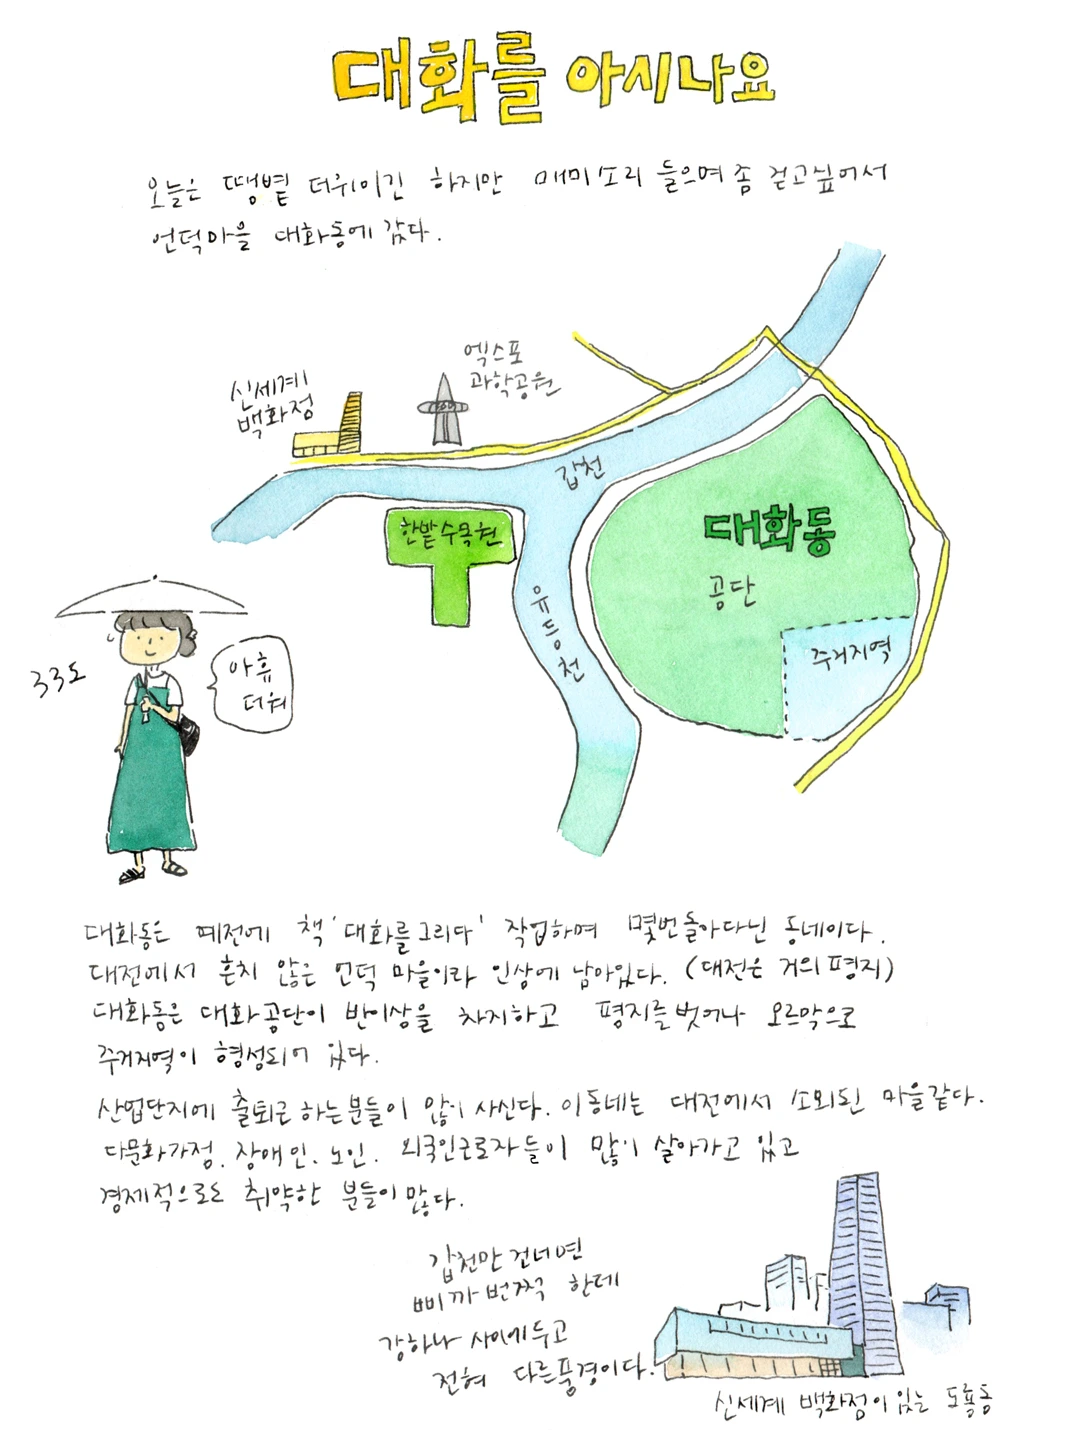 대화를 아시나요
오늘은 땡볕 더위이긴 하지만 매미소리 들으며 좀 걷고싶어서
언덕마을 대화동에 갔다.
신세계
백화점
엑스포
과학공원
갑천
한밭수목원
유등천
대화동
공단
주거지역
33도
아휴
더워
대화동은 예전에 책 '대화를 그리다' 작업하며 몇번 돌아다닌 동네이다.
대전에서 흔치 않은 언덕 마을이라 인상에 남아있다. (대전은 거의 평지)
대화동은 대화공단이 반이상을 차지하고 평지를 벗어나 오르막으로
주거지역이 형성되어 있다.
산업단지에 출퇴근 하는 분들이 많이 사신다. 이동네는 대전에서 소외된 마을같다.
다문화가정. 장애인. 노인. 외국인근로자들이 많이 살아가고 있고
경제적으로도 취약한 분들이 많다.
갑천만 건너면
삐까번쩍 한데
강하나 사이에 두고
전혀 다른풍경이다.
신세계 백화점이 있는 도룡동